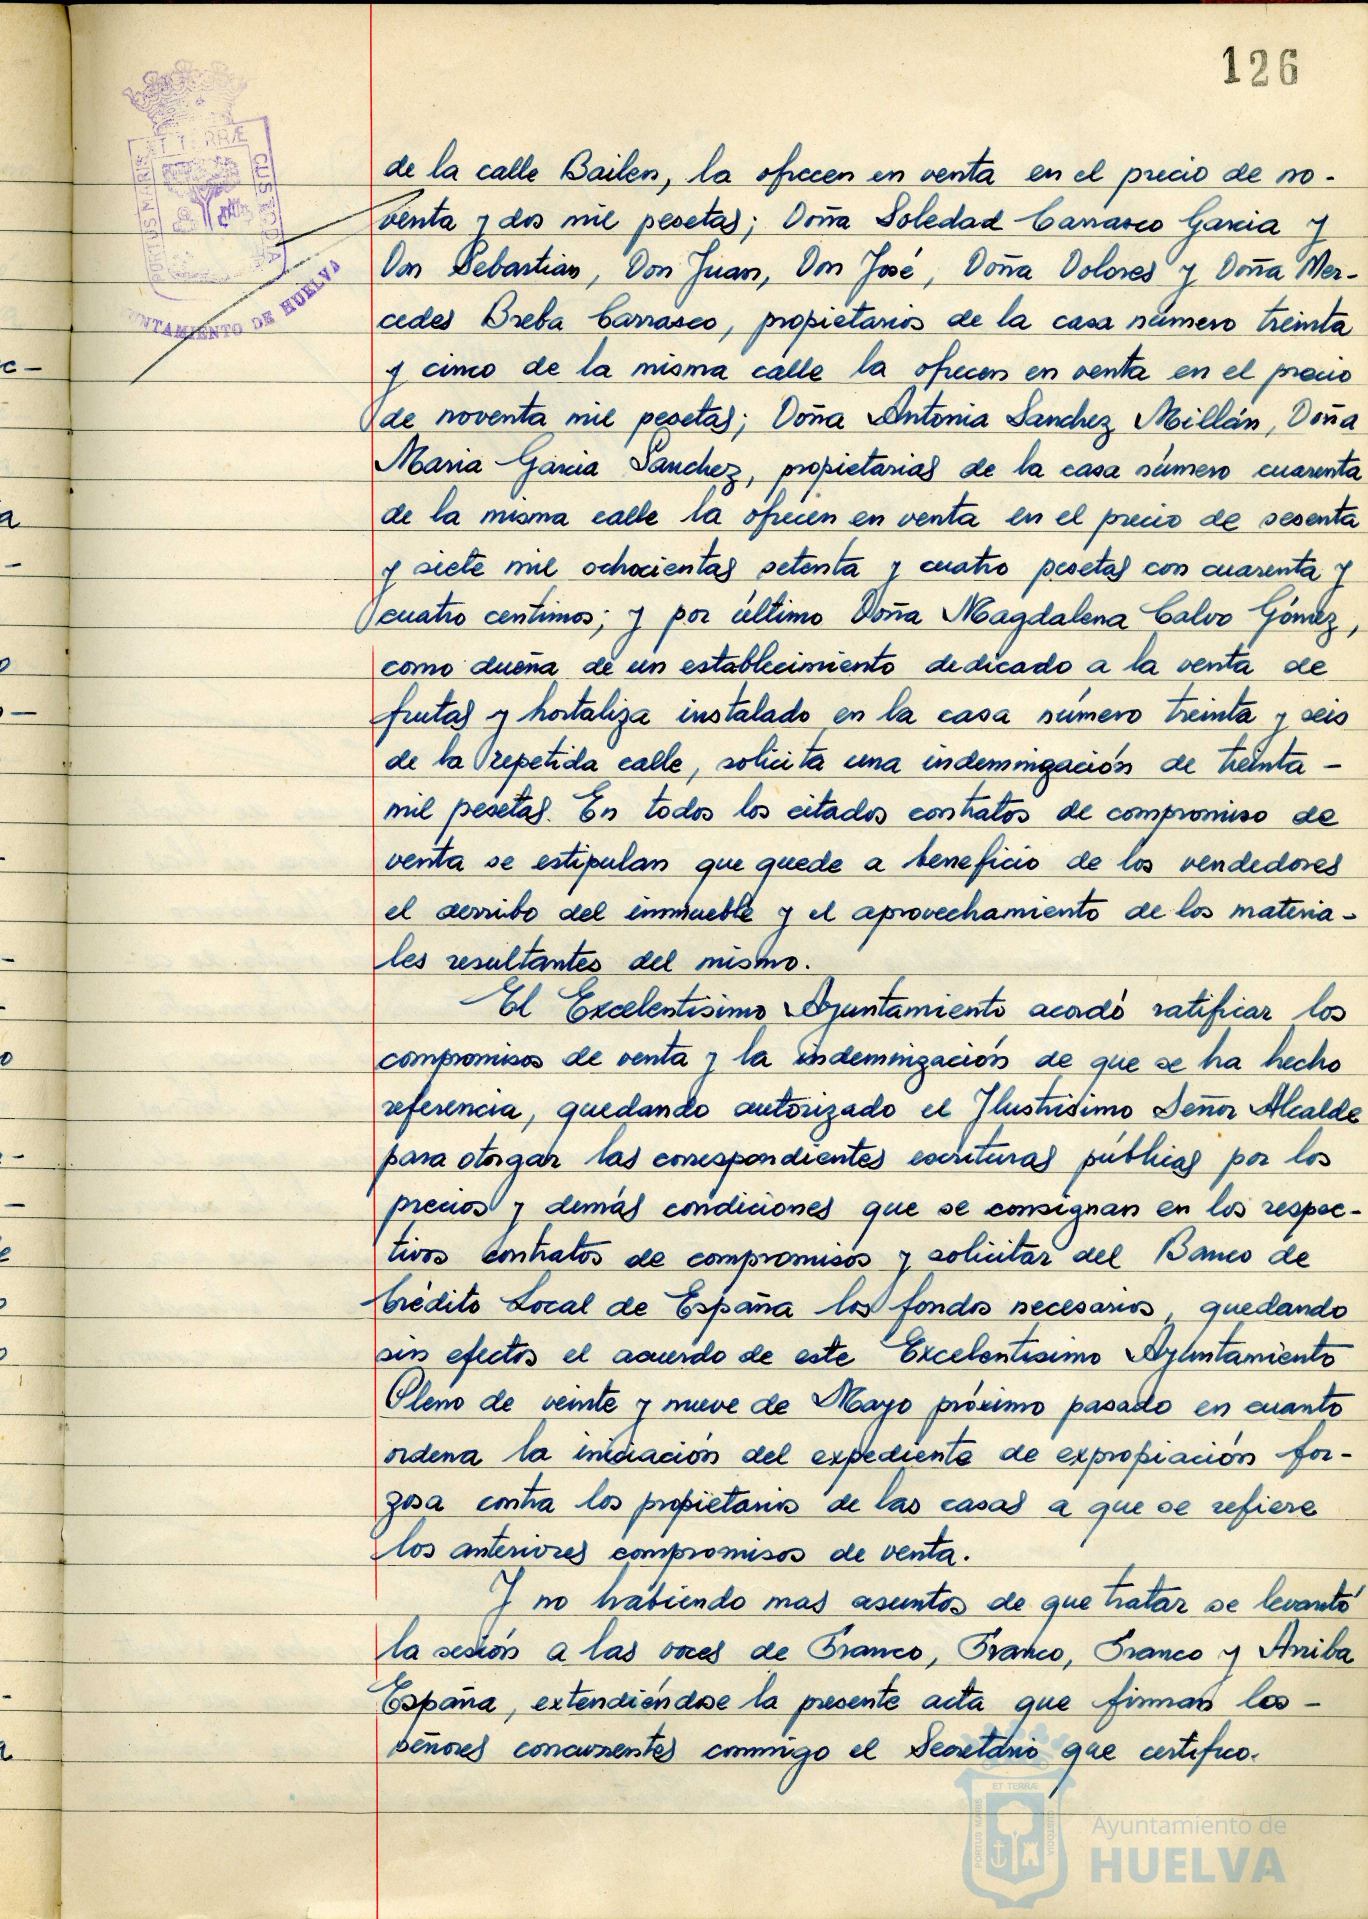 126
ET TERRÆ
PORTUS MARIS
CUSTODIA
UNTAMIENTO DE HUELVA
de la calle Bailen, la ofrecen en venta en el precio de no-
venta y dos mil pesetas; Doña Soledad Carrasco Garcia y
Don Sebastian, Don Juan, Don José, Doña Dolores y Doña Mer-
cedes Breba Carrasco, propietarios de la casa número treinta
y cinco de la misma calle la ofrecen en venta en el precio
de noventa mil pesetas; Doña Antonia Sanchez Millán, Doña
Maria Garcia Sanchez, propietarias de la casa número cuarenta
de la misma calle la ofrecen en venta en el precio de sesenta
y siete mil ochocientas setenta y cuatro pesetas con cuarenta y
cuatro centimos; y por último Doña Magdalena Calvo Gómez,
como dueña de un establecimiento dedicado a la venta de
frutas y hortaliza instalado en la casa número treinta y seis
de la repetida calle, solicita una indemnización de treinta -
mil pesetas. En todos los citados contratos de compromiso de
venta se estipulan que quede a beneficio de los vendedores
el derribo del inmueble y el aprovechamiento de los materia-
les resultantes del mismo.
El Excelentisimo Ayuntamiento acordó ratificar los
compromisos de venta y la indemnización de que se ha hecho
referencia, quedando autorizado el Ilustrisimo Señor Alcalde
para otorgar las correspondientes escrituras públicas por los
precios y demás condiciones que se consignan en los respec-
tivos contratos de compromisos y solicitar del Banco de
Crédito Local de España los fondos necesarios, quedando
sin efectos el acuerdo de este Excelentisimo Ayuntamiento
Pleno de veinte y nueve de Mayo próximo pasado en cuanto
ordena la iniciación del expediente de expropiación for-
zosa contra los propietarios de las casas a que se refiere
los anteriores compromisos de venta.
Y no habiendo mas asuntos de que tratar se levantó
la sesión a las voces de Franco, Franco, Franco y Arriba
España, extendiéndose la presente acta que firman los -
señores concurrentes conmigo el Secretario que certifico.
ET TERRÆ
PORTUS MARIS
CUSTODIA
Ayuntamiento de
HUELVA